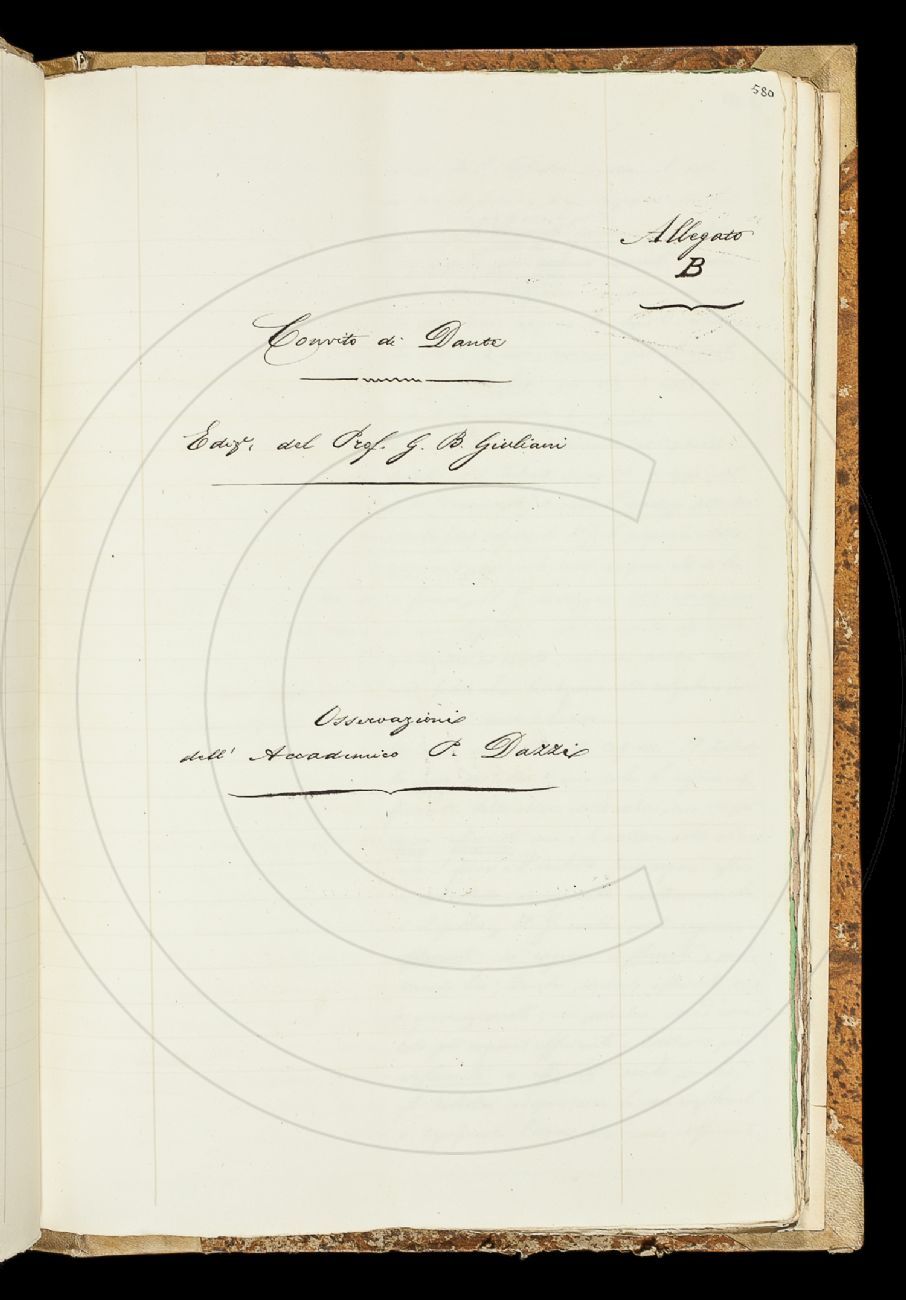 580
Allegato
B
Convito di Dante
Ediz.e del Prof. G. B. Giuliani
Osservazioni
dell' Accademico P. Dazzi